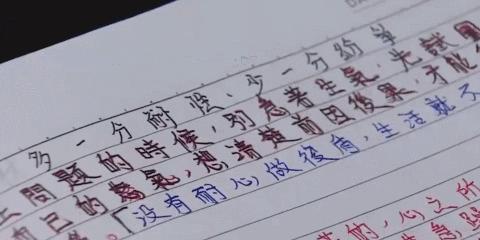 多一分耐性、少一分紛爭
上問題的時候,別急著生氣,先試
自己的脾氣,想清楚前因後果,才能
「没有耐心做後盾,生活就不
的,心之所